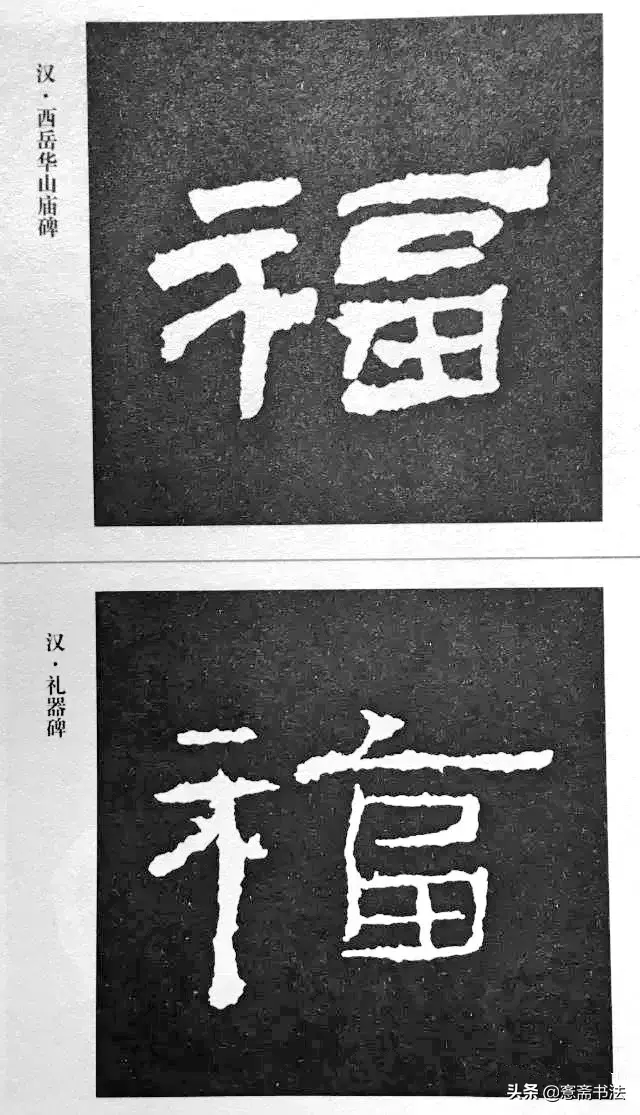 汉·西岳华山庙碑
福
汉·礼器碑
福
头条@寋斋书法